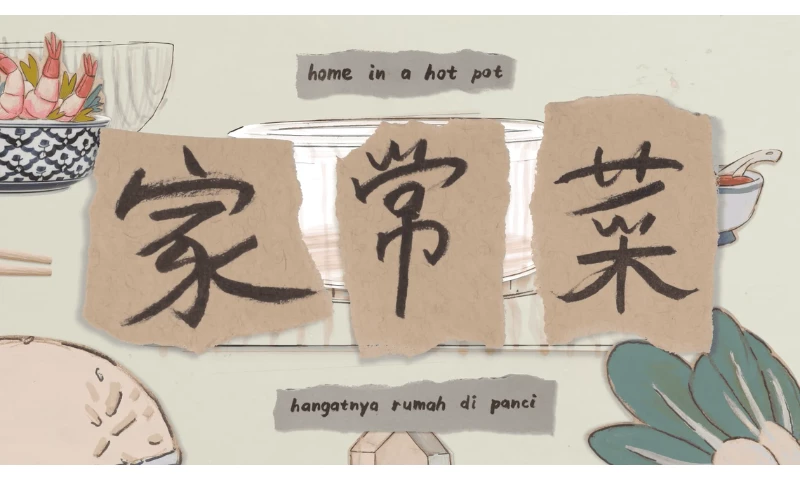 home in a hot pot
家常菜
hangatnya rumah di panci